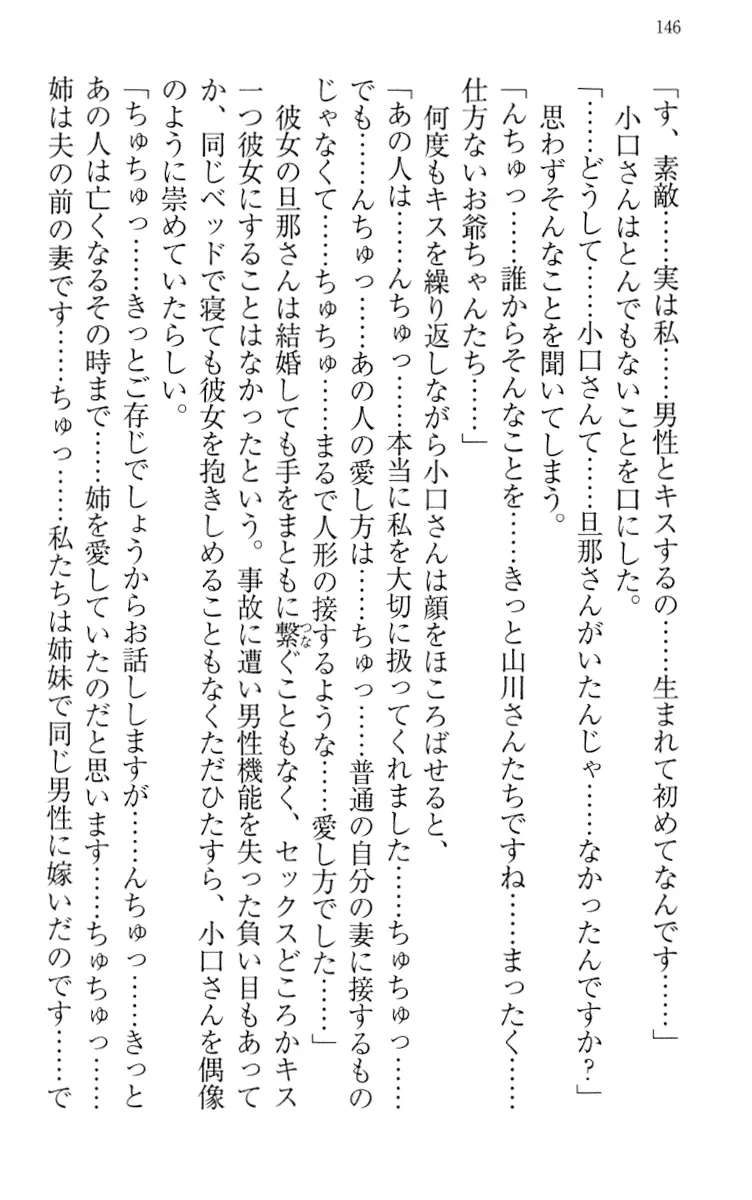 146
「す、素敵……実は私……男性とキスするの……生まれて初めてなんです……」
小口さんはとんでもないことを口にした。
「……どうして……小口さんて……旦那さんがいたんじゃ……なかったんですか？」
思わずそんなことを聞いてしまう。
「んちゅっ……誰からそんなことを……きっと山川さんたちですね……まったく……
仕方ないお爺ちゃんたち……」
何度もキスを繰り返しながら小口さんは顔をほころばせると、
「あの人は……んちゅっ……本当に私を大切に扱ってくれました……ちゅちゅっ……
でも……んちゅっ……あの人の愛し方は……ちゅっ……普通の自分の妻に接するもの
じゃなくて……ちゅちゅ……まるで人形の接するような……愛し方でした……」
彼女の旦那さんは結婚しても手をまともに繋ぐこともなく、セックスどころかキス
一つ彼女にすることはなかったという。事故に遭い男性機能を失った負い目もあって
か、同じベッドで寝ても彼女を抱きしめることもなくただひたすら、小口さんを偶像
のように崇めていたらしい。
「ちゅちゅっ……きっとご存じでしょうからお話ししますが……んちゅっ……きっと
あの人は亡くなるその時まで……姉を愛していたのだと思います……ちゅちゅっ……
姉は夫の前の妻です……ちゅっ……私たちは姉妹で同じ男性に嫁いだのです……で